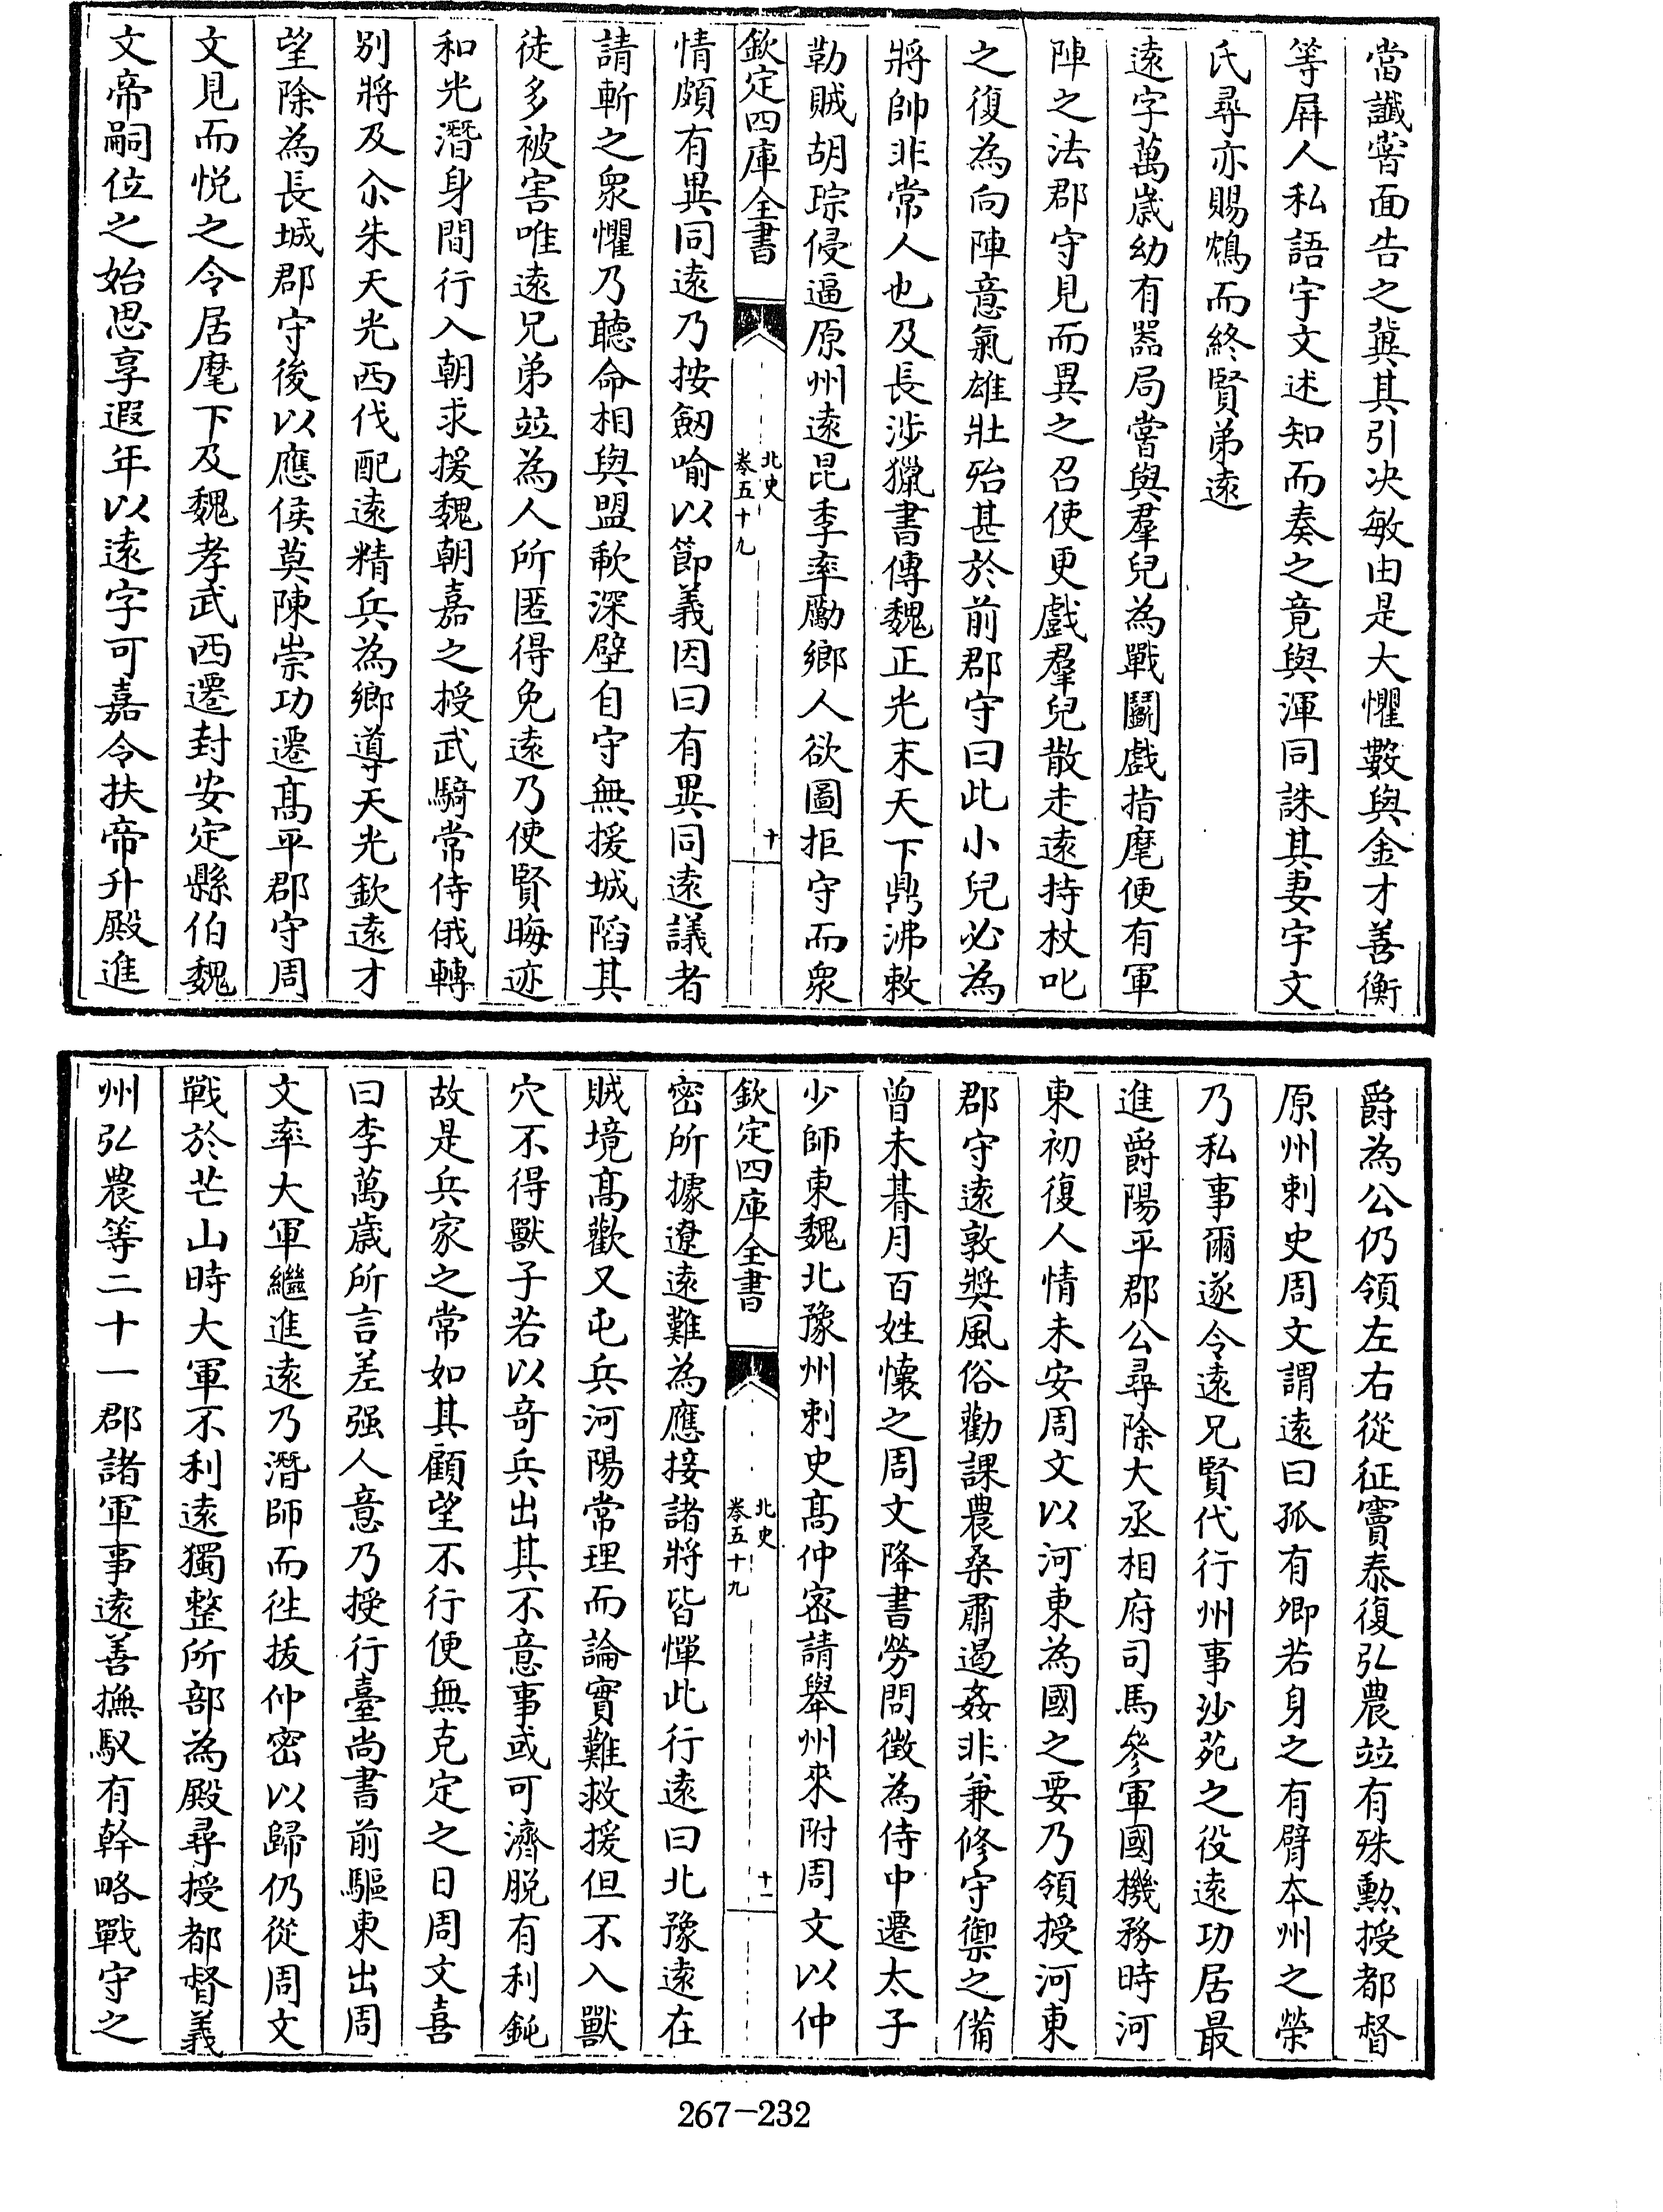 當讖甞面告之冀其引决敏由是大懼數與金才善衡
等屏人私語宇文述知而奏之竟與渾同誅其妻宇文
氏尋亦賜鴆而終賢弟遠
遠字萬歳幼有器局嘗與羣兒為戰鬭戲指麾便有軍
陣之法郡守見而異之召使更戲羣兒散走遠持杖叱
之復為向陣意氣雄壯殆甚於前郡守曰此小兒必為
將帥非常人也及長涉獵書傳魏正光末天下鼎沸敕
勒賊胡琮侵逼原州遠昆季率勵鄉人欲圖拒守而衆
欽定四庫全書
北史
卷五十九
十
情頗有異同遠乃按劒喻以節義因曰有異同遠議者
請斬之衆懼乃聽命相與盟歃深壁自守無援城䧟其
徒多被害唯遠兄弟竝為人所匿得免遠乃使賢晦迹
和光潛身間行入朝求援魏朝嘉之授武騎常侍俄轉
别將及尒朱天光西伐配遠精兵為鄉導天光欽遠才
望除為長城郡守後以應侯莫陳崇功遷髙平郡守周
文見而悦之令居麾下及魏孝武西遷封安定縣伯魏
文帝嗣位之始思享遐年以遠字可嘉令扶帝升殿進
爵為公仍領左右從征竇泰復弘農竝有殊勲授都督
原州刺史周文謂遠曰孤有卿若身之有臂夲州之榮
乃私事爾遂令遠兄賢代行州事沙苑之役遠功居最
進爵陽平郡公尋除大丞相府司馬參軍國機務時河
東初復人情未安周文以河東為國之要乃領授河東
郡守遠敦奬風俗勸課農桑肅遏姦非兼修守禦之備
曾未朞月百姓懷之周文降書勞問徴為侍中遷太子
少師東魏北豫州刺史髙仲密請舉州來附周文以仲
欽定四庫全書
北史
卷五十九
十一
密所據遼遠難為應接諸將皆憚此行遠曰北豫遠在
賊境髙歡又屯兵河陽常理而論實難救援但不入獸
穴不得獸子若以奇兵出其不意事或可濟脱有利鈍
故是兵家之常如其顧望不行便無克定之日周文喜
曰李萬歳所言差强人意乃授行臺尚書前驅東出周
文率大軍繼進遠乃潛師而徃拔仲密以歸仍從周文
戰於芒山時大軍不利遠獨整所部為殿尋授都督義
州弘農等二十一郡諸軍事遠善撫馭有幹略戰守之
267-232